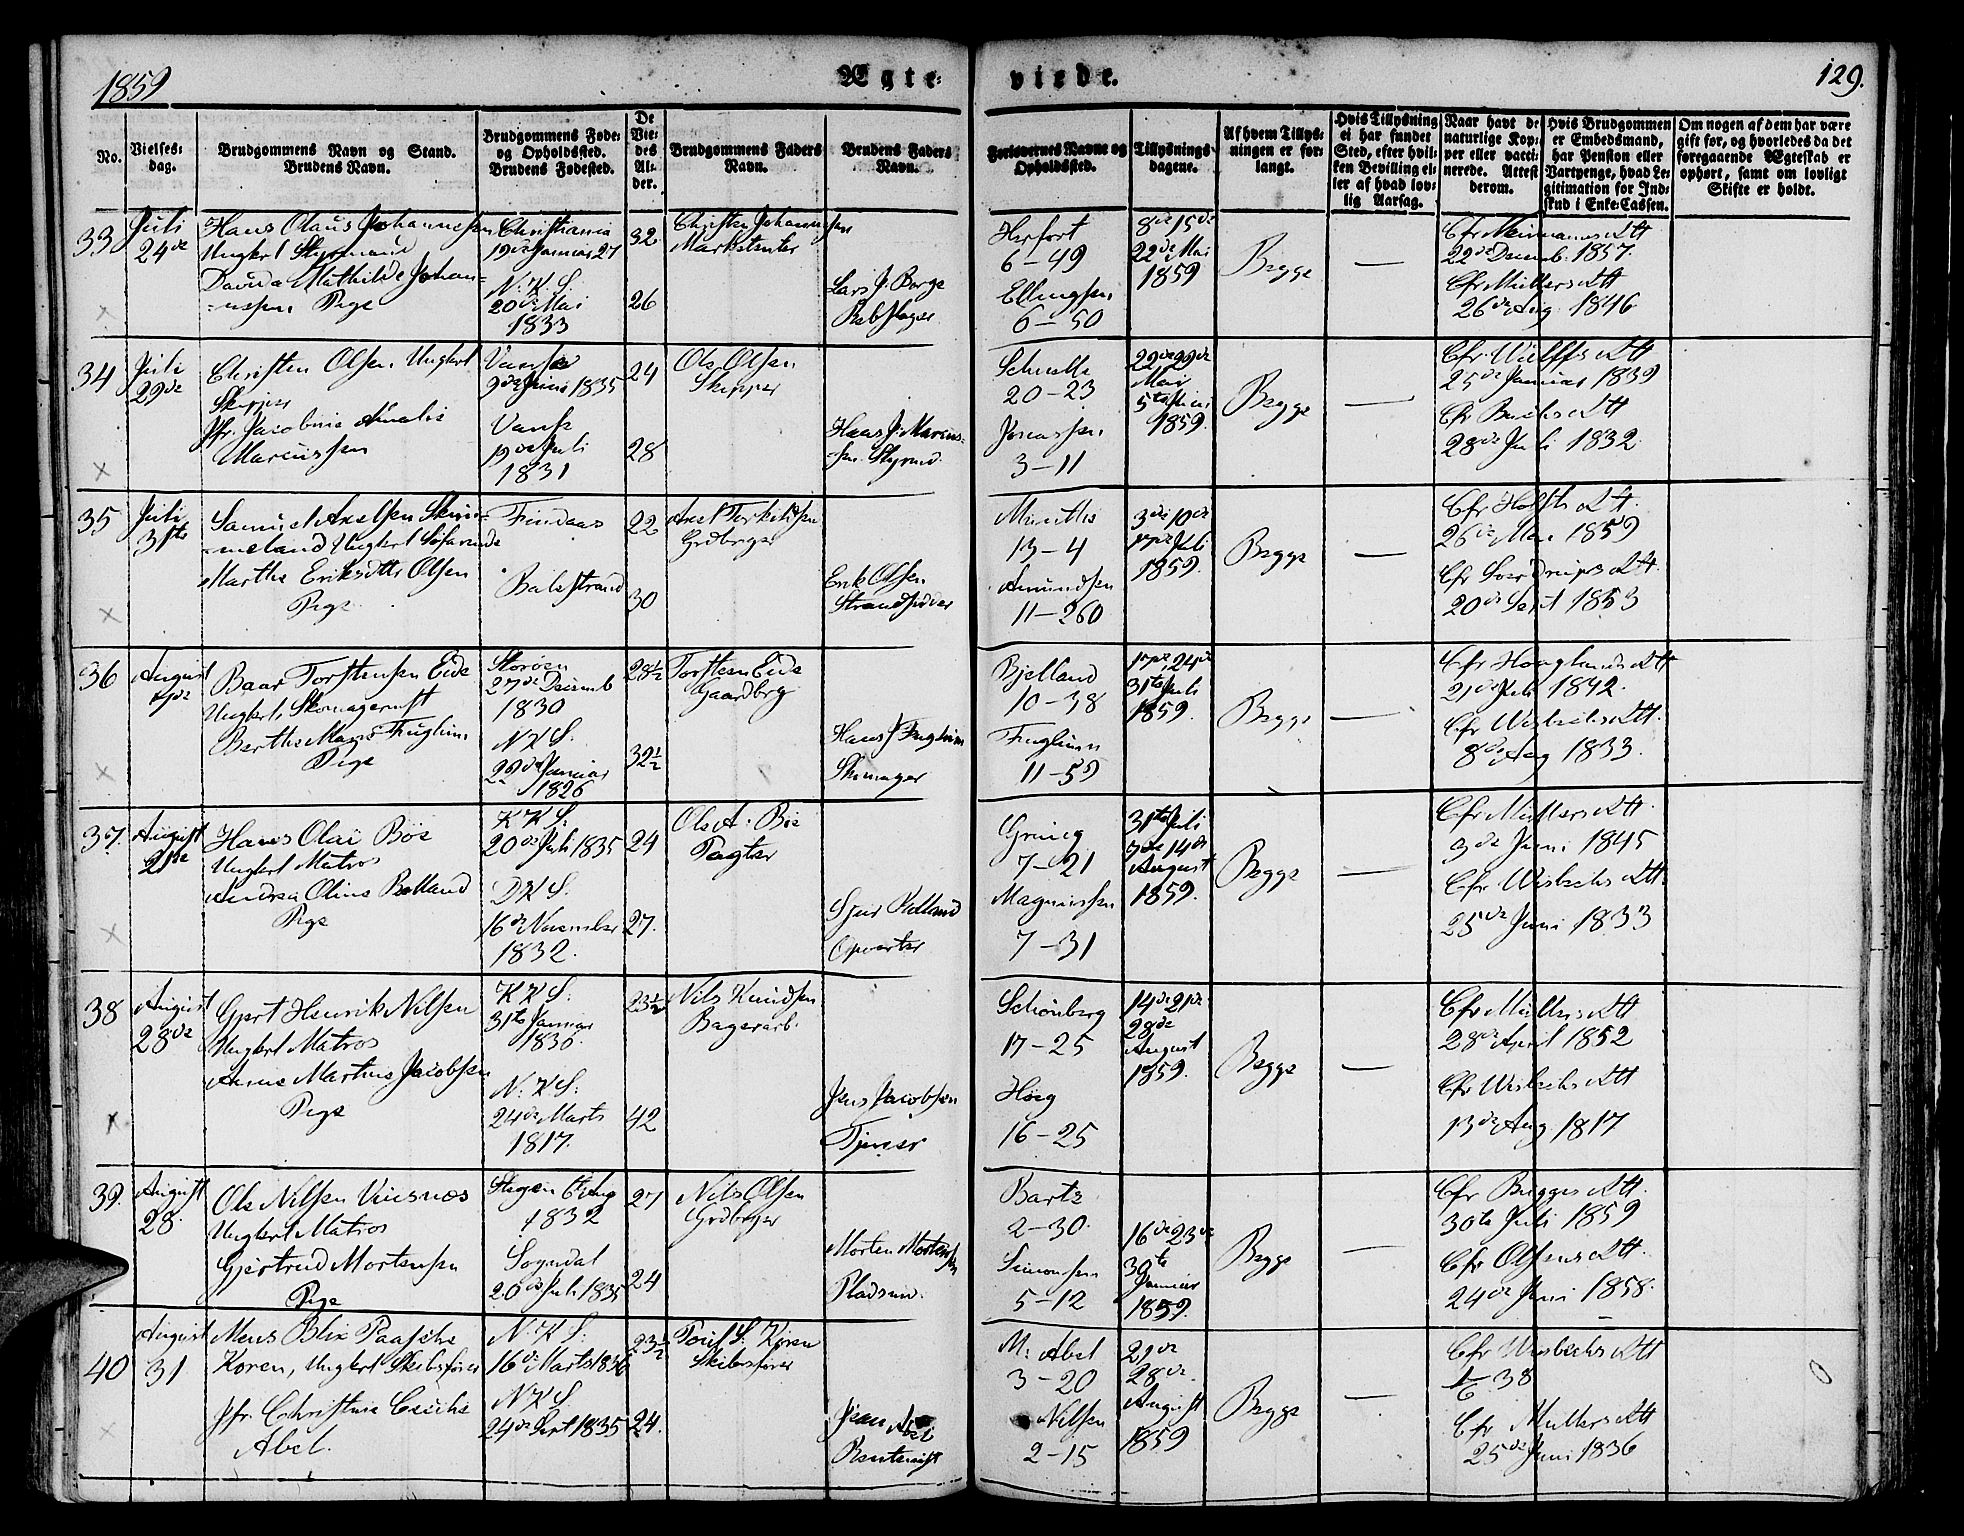 1859
Ægte-
viede.
129.
No.
Vielses-
dag.
Brudgommens Navn og Stand.
Brudens Navn.
Brudgommens Føde-
og Opholdssted.
Brudens Fødested.
De
Vie-
des
Al-
der.
Brudgommens Faders
Navn.
Brudens Faders
Navn.
Forlovernes Navne og
Opholdssted.
Tillysnings
dagene.
Af hvem Tillys-
ningen er for-
langt.
Hvis Tillysning
ei har fundet
Sted, efter hvil-
ken Bevilling el-
ler af hvad lov-
lig Aarsag.
Naar havt de
naturlige Kop-
per eller vacci-
nerede. Attest
derom.
Hvis Brudgommen
er Embedsmand,
har Pension eller
Vartpenge, hvad Le-
gitimation for Ind-
skud i Enke-Cassen.
Om nogen af dem har være
gift før, og hvorledes da det
foregaaende Ægteskab er
ophørt, samt om lovligt
Skifte er holdt.
33
Juli
24de
Hans Olaus Johannesen
Ungkarl Styrmand
Davida Mathilde Johan-
-nessen Pige
Christiania
19de Januar 27
N. K. S.
20de Mai
1833
32
26
Christen Johannessen
Marketenter
Lars J. Borge
Rebslager
Herfort
6-49
Ellingsen
6-50
8de 15de
22de Mai
1859
Begge
—
Cfr Neumanns Att
22de Decemb. 1857.
Cfr Müllers Att
26de Aug 1846
34
Juli
29de
Christen Olsen Ungkarl
Skipper
Jfr. Jacobine Amalie
Marcussen
Vanse
9de Juni 1835
Vanse
19de Juli
1831
24
28
Ole Olsen
Skipper
Hans J. Marcus-
-sen Styrmd.
20-23
Jonassen
3-11
22de 29de
Mai
5te Juni
1859.
Begge
—
Cfr Wulffs Att
25de Januar 1839
Cfr Buchs Att
28de Juli 1832.
35
Juli
31te
Samuel Axelsen Skim-
-meland Ungkarl Søfarende
Marthe Eriksdtr Olsen
Pige
Findaas
Balestrand
22
30
Axel Torkildsen
Grdbrger
Erik Olsen
Strandsidder
Munthe
13-4
Amundsen
11-260
3de 10de
17de Juli
1859.
Begge
—
Cfr Holsts Att.
26de Mai 1859
Cfr Sverdrups Att.
20de Sept 1853
36
August
Baar Torstensen Eide
Ungkarl, Skomagersvst
Berthe Marie Fuglium
Pige
Storøen
27de Decemb
1830
N K S.
29de Januar
1826
28½
32½
Torsteen Eide
Gaardbrg
Hans J Fuglium
Skomager
Bjelland
10-38
Fuglium
11-59
17de, 24de
31te Juli
1859.
Begge
—
Cfr Hoaglunds Att
21de Juli 1842.
Cfr Wisbechs Att.
8de Aug 1833.
37.
August
21de
Hans Olai Bøe
Ungkarl Matros
Andrea Oline Rolland
Pige
K K S.
20de Juli 1835
D K S.
16de November
1832.
24
27.
Ole A. Bøe
Pagter
Sjur Rolland
Opvarter
Grieg
7-21
Magnussen
7-31
31te Juli
7de 14de
August
1859.
Begge
—
Cfr Müllers Att.
3de Juni 1845
Cfr Wisbechs Att.
25de Juni 1833
38
August
28de
Gjert Henrik Nilsen
Ungkarl Matros
Anne Martine Jacobsen
Pige
K K S.
31te Januar
1836.
N. K S.
24de Marts
1817.
23½
42
Nils Knudsen
Bagerarb.
Jens Jacobsen
Tjener
Schönberg
17-25
Høeg
16-25
14de 21de
28de
August
1859.
Begge
—
Cfr Müllers Att
28de April 1852
Cfr Wisbechs Att
13de Aug 1817
39.
August
28.
Ole Nilsen Viesnæs
Ungkarl Matros
Gjertrud Mortensen
Pige
1832
Sogndal
20de Juli 1835
27
24
Nils Olsen
Grdbrger
Morten Mortensen
Pladsmd.
Bartz
2-30.
Simonsen
5-12
16de 23de
30te
Januar
1859.
Begge
—
Cfr Brigges Att.
30te Juli 1859
Cfr Olsens Att.
24de Juni 1858.
40
August
31
Mens Blix Paasche
Koren, Ungkarl Skibsfører
Jfr. Christine Cecilie
Abel.
N. K S.
16de Marts 1836
N K S.
24de Sept 1835
23½
24.
Touf S. Koren
Skibsfører
Jean Abel
M. Abel
3-20
Nilsen
2-15
21de
28de.
August
1859
Begge
—
Cfr Wisbechs Att
38
Cfr Müllers Att
25de Juni 1836